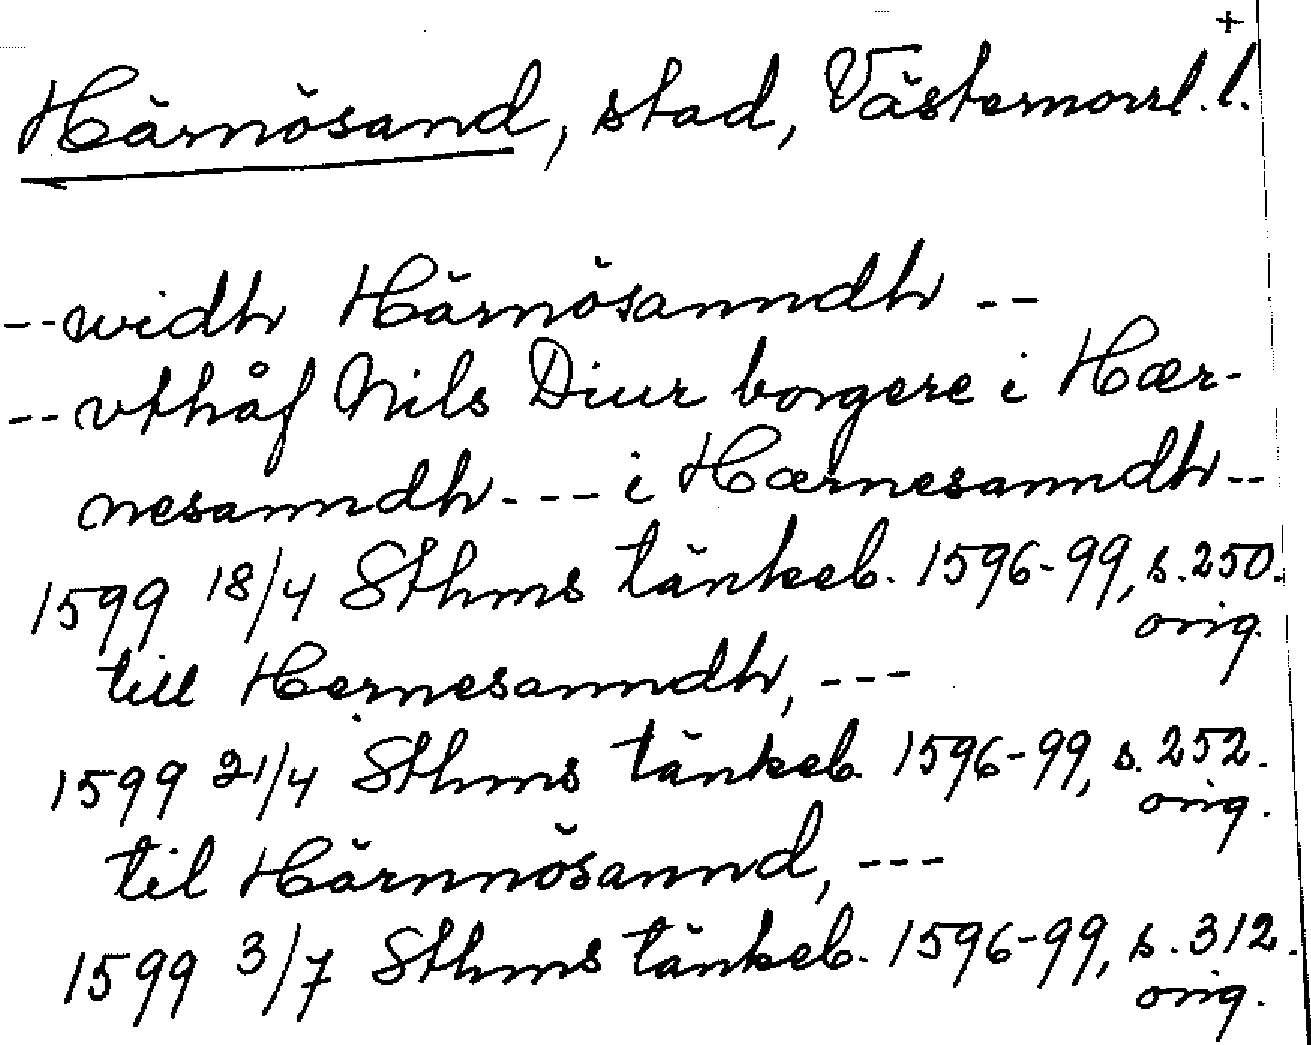 +
Härnösand, stad, Västernorrl. l.
--widh Härnösanndh --
--vthåf Nils Diur borgere i Hær-
nesanndh --- i Hærnesanndh --
1599 18/4 Sthms tänkeb. 1596-99, s. 250.
orig.
till Hernesanndh, ---
1599 21/4 Sthms tänkeb. 1596-99, s. 252.
orig.
til Härnnösannd, ---
1599 3/7 Sthms tänkeb. 1596-99, s. 312.
orig.